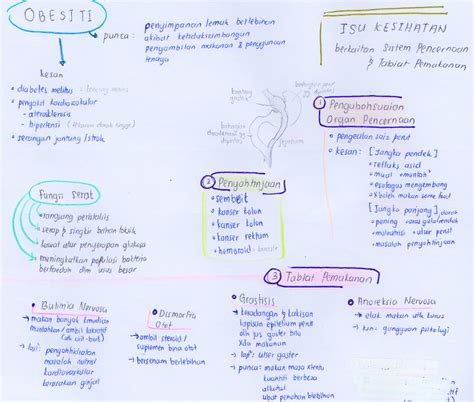 OBESITI
punca : penyimpanan lemak berlebihan
akibat ketidakseimbangan
pengambilan makanan & penggunaan
tenaga
kesan
• diabetes melitus - kencing manis
• penyakit kardiovaskular
- aterosklerosis
- hipertensi (tekanan darah tinggi)
• serangan jantung / strok
ISU KESIHATAN
berkaitan Sistem Pencernaan
& Tabiat Pemakanan
1 Pengubahsuaian
Organ Pencernaan
• pengecilan saiz perut
• kesan : [Jangka pendek]
• refluks asid
• mual muntah
• esofagus mengembang
• x boleh makan some food
[Jangka panjang]
• malnutrisi • ulser perut
• masalah penyahtinjaan
Fungsi Serat
• rangsang peristalsis
• serap & singkir bahan toksik
• kawal atur penyerapan glukosa
• meningkatkan populasi bakteria
berfaedah dlm usus besar
2 Penyahtinjaan
• sembelit
• kanser kolon
• kanser kolon
• kanser rektum
• hemoroid
3 Tabiat Pemakanan
• Bulimia Nervosa
→ makan banyak kemudian
muntahkan / ambil laksatif
→ lagi : penyahhidratan
masalah mental
kardiovaskular
kerosakan ginjal
• Dismorfia
Otot
→ ambil steroid /
suplemen bina otot
→ bersenam berlebihan
• Grastisis
→ keradangan & hakisan
lapisan epitelium perut
dlm jus gaster bila
x da makanan
→ lagi : ulser gaster
→ punca : makan masa x tentu
kuantiti berbeza
alkohol
ubat penahan berlebihan
• Anoreksia Nervosa
→ elak makan utk kurus
→ kena gangguan psikologi